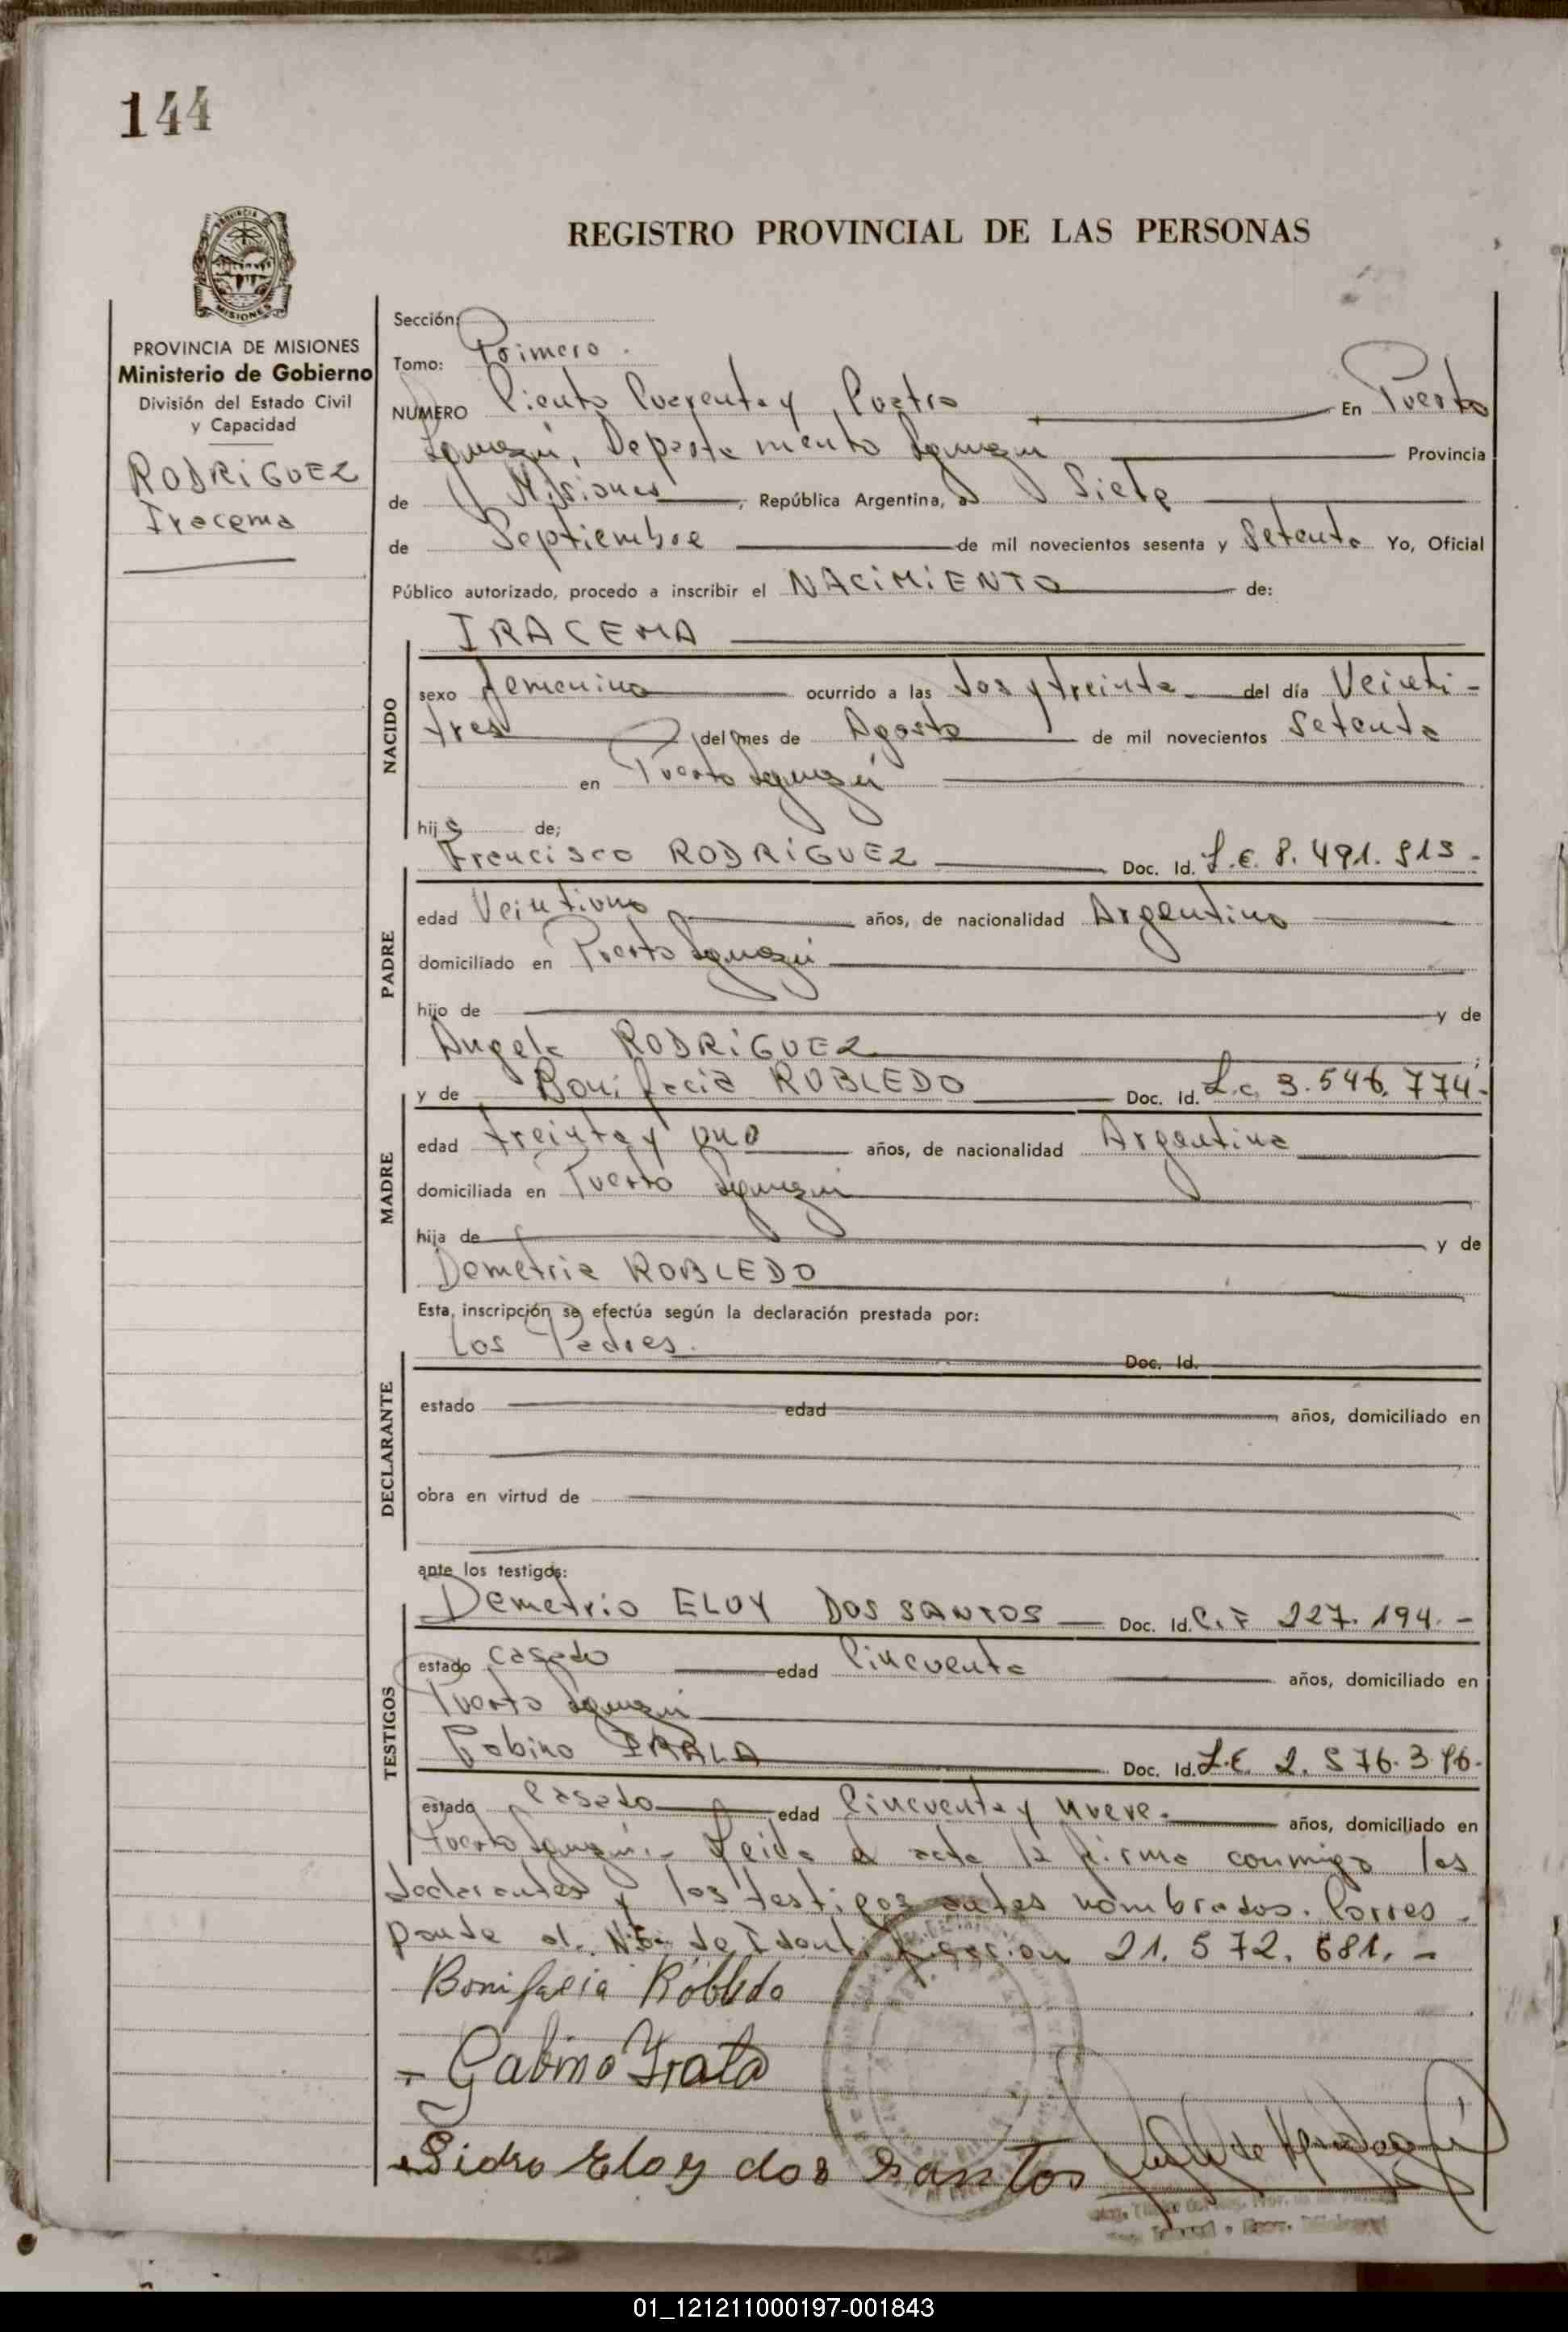 144
REGISTRO PROVINCIAL DE LAS PERSONAS
PROVINCIA DE MISIONES
Ministerio de Gobierno
División del Estado Civil
y Capacidad
RODRIGUEZ
Iracema
Sección:
Tomo: Primero.
NUMERO Ciento Cuarenta y Cuatro En Puerto
Iguazú, Departamento Iguazú Provincia
de Misiones, República Argentina, a Siete
de Septiembre de mil novecientos sesenta y Setenta Yo, Oficial
Público autorizado, procedo a inscribir el NACIMIENTO de:
IRACEMA
NACIDO
sexo femenino ocurrido a las dos y treinta del día Veinti-
tres del mes de Agosto de mil novecientos Setenta
en Puerto Iguazú
hija de;
Francisco RODRIGUEZ Doc. Id. L.E. 8.491.913-
PADRE
edad Veintiuno años, de nacionalidad Argentino
domiciliado en Puerto Iguazú
hijo de y de
Angela RODRIGUEZ
y de Bonifacia ROBLEDO Doc. Id. L.C. 3.546.774-
MADRE
edad treinta y uno años, de nacionalidad Argentina
domiciliada en Puerto Iguazú
hija de y de
Demetria ROBLEDO
Esta inscripción se efectúa según la declaración prestada por:
Los Padres.
Doc. Id.
DECLARANTE
estado edad años, domiciliado en
obra en virtud de
ante los testigos:
Demetrio ELOY DOS SANTOS Doc. Id. C.I 227.194.-
TESTIGOS
estado casado edad Cincuenta años, domiciliado en
Puerto Iguazú
Gabino IRALA Doc. Id. L.E. 2.576.396-
estado Casado edad Cincuenta y nueve. años, domiciliado en
Puerto Iguazú.- Leida el acta la firma conmigo los
declarantes y los testigos antes nombrados. Corres-
ponde al N° de Identificacion 21.572.681.-
Bonifacia Robledo
Gabino Irala
Sidro Eloy dos Santos
01_121211000197-001843